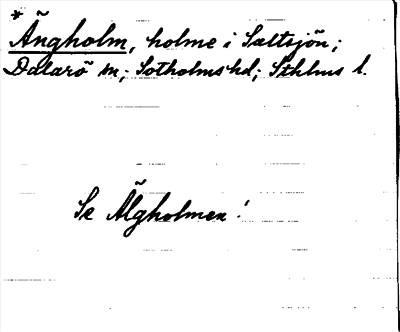 * Ängholm, holme i Saltsjön;
Dalarö sn; Sotholms hd; Sthlms l.
Se Älgholmen!